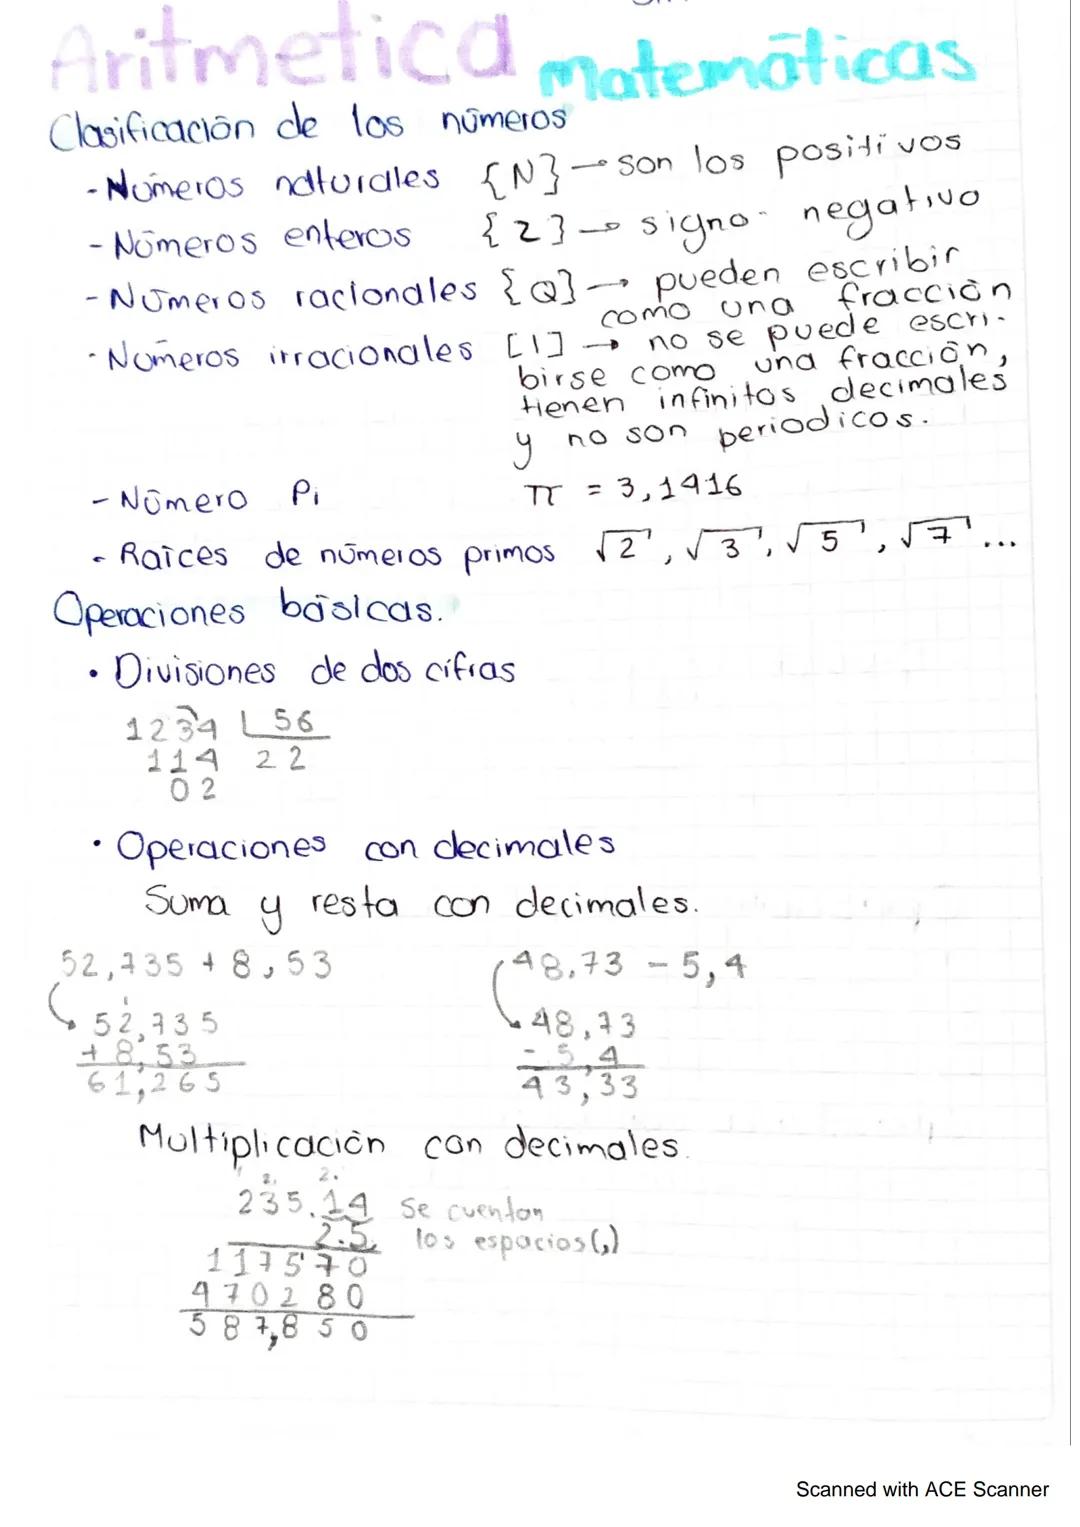 Aritmetica Matemáticas
Clasificación de los números
- Números naturales {N} → son los positivos
- Números enteros {Z} → signo - negativo
- Números racionales {Q} → pueden escribir
como una fracción
- Números irracionales [I] → no se puede escri-
birse como una fracción,
tienen infinitos decimales
y no son periodicos.
- Número Pi π = 3,1416
- Raíces de números primos √2, √3, √5, √7...
Operaciones básicas.
• Divisiones de dos cifras
1234 56
114 22
02
• Operaciones con decimales
Suma y resta con decimales.
52,735 + 8,53 48,73 - 5,4
1
52,735 48,73
+ 8,53 - 5,4
61,265 43,33
Multiplicación con decimales.
235.14 Se cuentan
2.5 los espacios (,)
117570
470280
587,850
Scanned with ACE Scanner